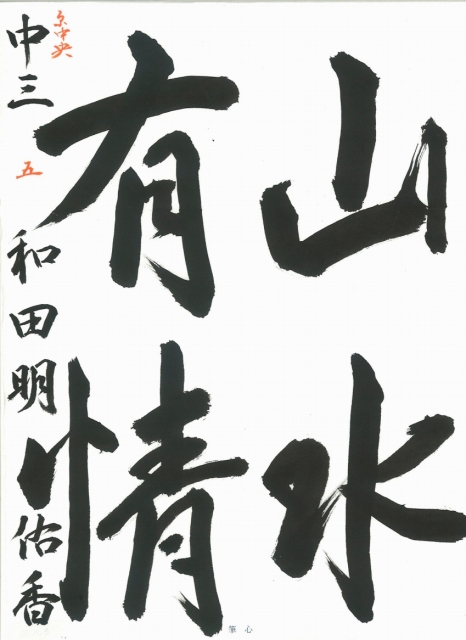 山水
有情
中三
和田明佑香
五
筆心